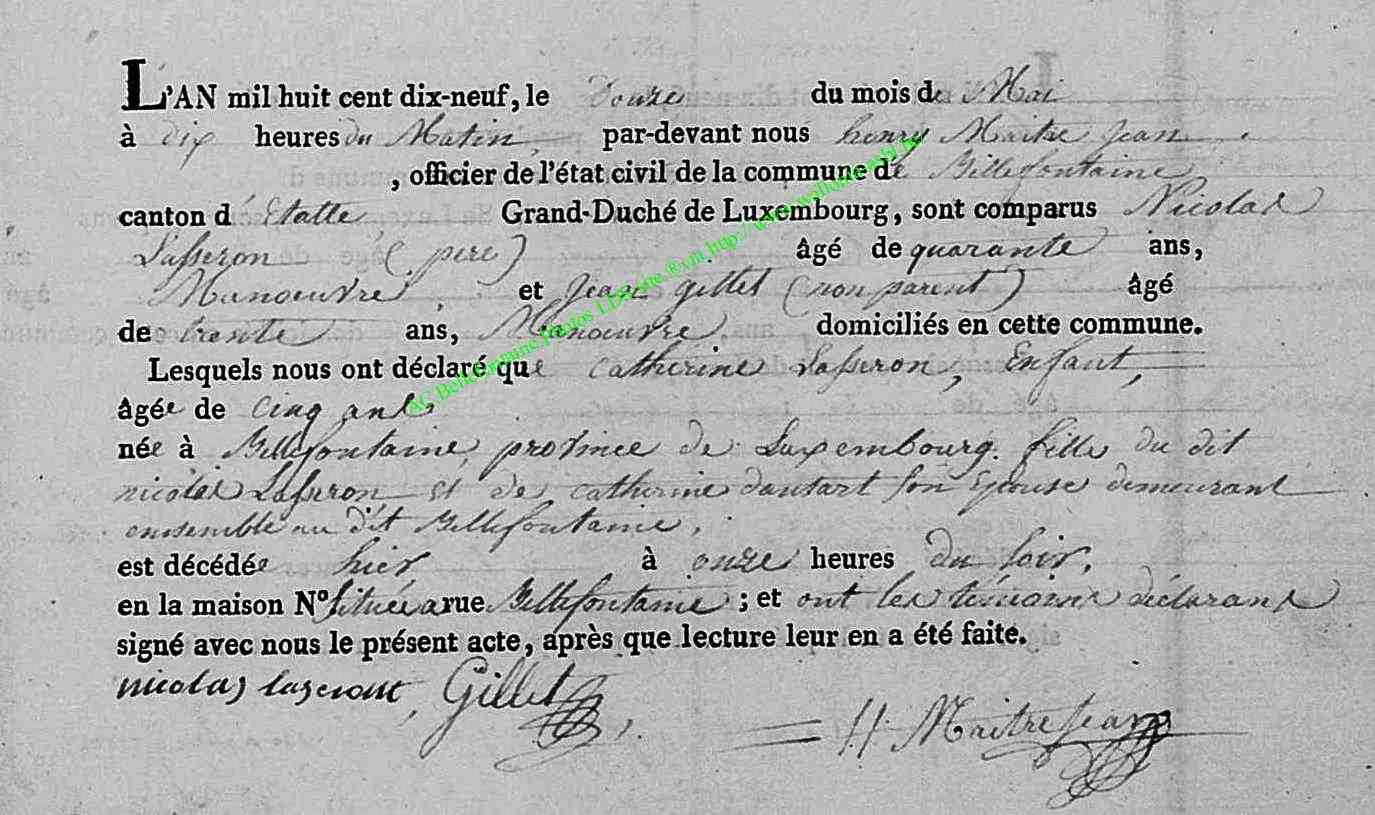 L'AN mil huit cent dix-neuf, le douze du mois de Mai
à dix heures du Matin, par-devant nous henry Maitre Jean
, officier de l'état civil de la commune de Bellefontaine
canton d'Etalle, Grand-Duché de Luxembourg, sont comparus Nicolas
Lasseron (pere) âgé de quarante ans,
Manoeuvre, et Jean gillet (non parent) âgé
de trente ans, Manoeuvre domiciliés en cette commune.
Lesquels nous ont déclaré que catherine Lasseron, Enfant,
âgée de cinq ans,
née à Bellefontaine, province de Luxembourg. fille du dit
nicolas Lasseron et de catherine dautart son Epouse demeurant
ensemble au dit Bellefontaine,
est décédée hier à onze heures du soir,
en la maison N° située a rue Bellefontaine ; et ont les témoins déclarans
signé avec nous le présent acte, après que lecture leur en a été faite.
nicolas lazeront, Gillet, H. Maitrejean